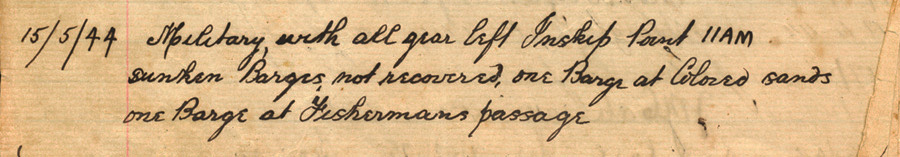 15/5/44 Military, with all gear left Inskip Point 11AM
sunken Barges, not recovered, one Barge at Colored sands
one Barge at Fishermans passage